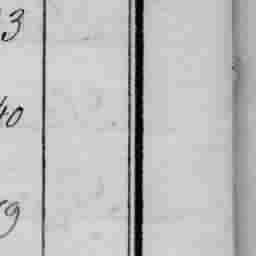 3
40
9